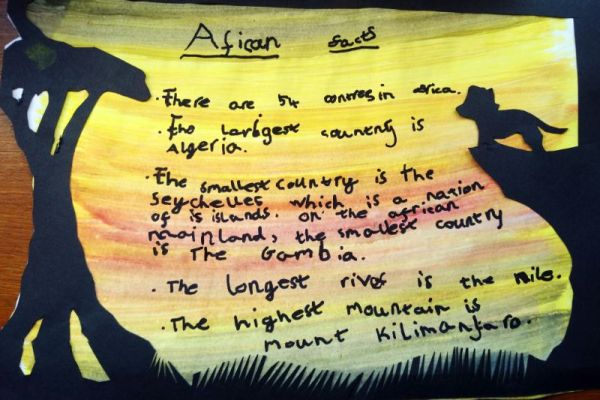 African facts
· There are 54 contres in africa.
· The largest country is
Algeria.
· The smallest country is the
seychelles which is a nation
of is islands. on the african
mainland, the smallest country
is The Gambia.
· The longest river is the nile.
· The highest mountain is
mount Kilimanjaro.